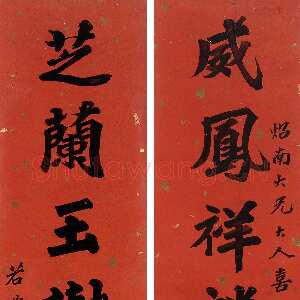 威鳳祥
炤南大兄大人喜
芝蘭玉樹
若